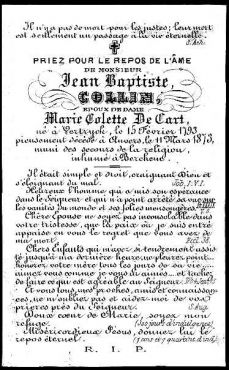 Il n'y a pas de mort pour les justes; leur mort
est seulement un passage à la vie éternelle.
S. Ath.
PRIEZ POUR LE REPOS DE L'ÂME
DE MONSIEUR
Jean Baptiste
COLLIN,
EPOUX DE DAME
Marie Colette De Cart,
né à Vertryck, le 15 Février 1793
pieusement décédé à Anvers, le 11 Mars 1873,
muni des secours de la religion,
inhumé à Berchem.
Il était simple et droit, craignant Dieu et
s'éloignant du mal. Job, I. V. I.
Heureux l'homme qui a mis son espérance
dans le Seigneur et qui n'a point arrêté sa vue sur
les vanités du monde et ses folies
Chère Epouse ne soyez pas inconsolable dans
votre tristesse, que la paix où je suis entré
appaise en vous le regret que vous avez de
ma mort. Eccl. 38.
Chers Enfants qui m'avez si tendrement assis-
té jusqu'à ma dernière heure, ne pleurez point
honorez votre mère tous les jours de sa vie
aimez vous comme je vous ai aimés et tachez
de faire ce qui est agréable au Seigneur.
Et vous tous, mes proches, amis et connaissan-
ces, ne m'oubliez pas et aidez-moi de vos
prières près du Seigneur. S. Aug.
Doux cœur de Marie, soyez mon
refuge. (300 jours d'indulgences)
Miséricordieux Jésus, donnez lui le
repos éternel. (7 ans et 7 quarant. d'ind.)
R. I. P.